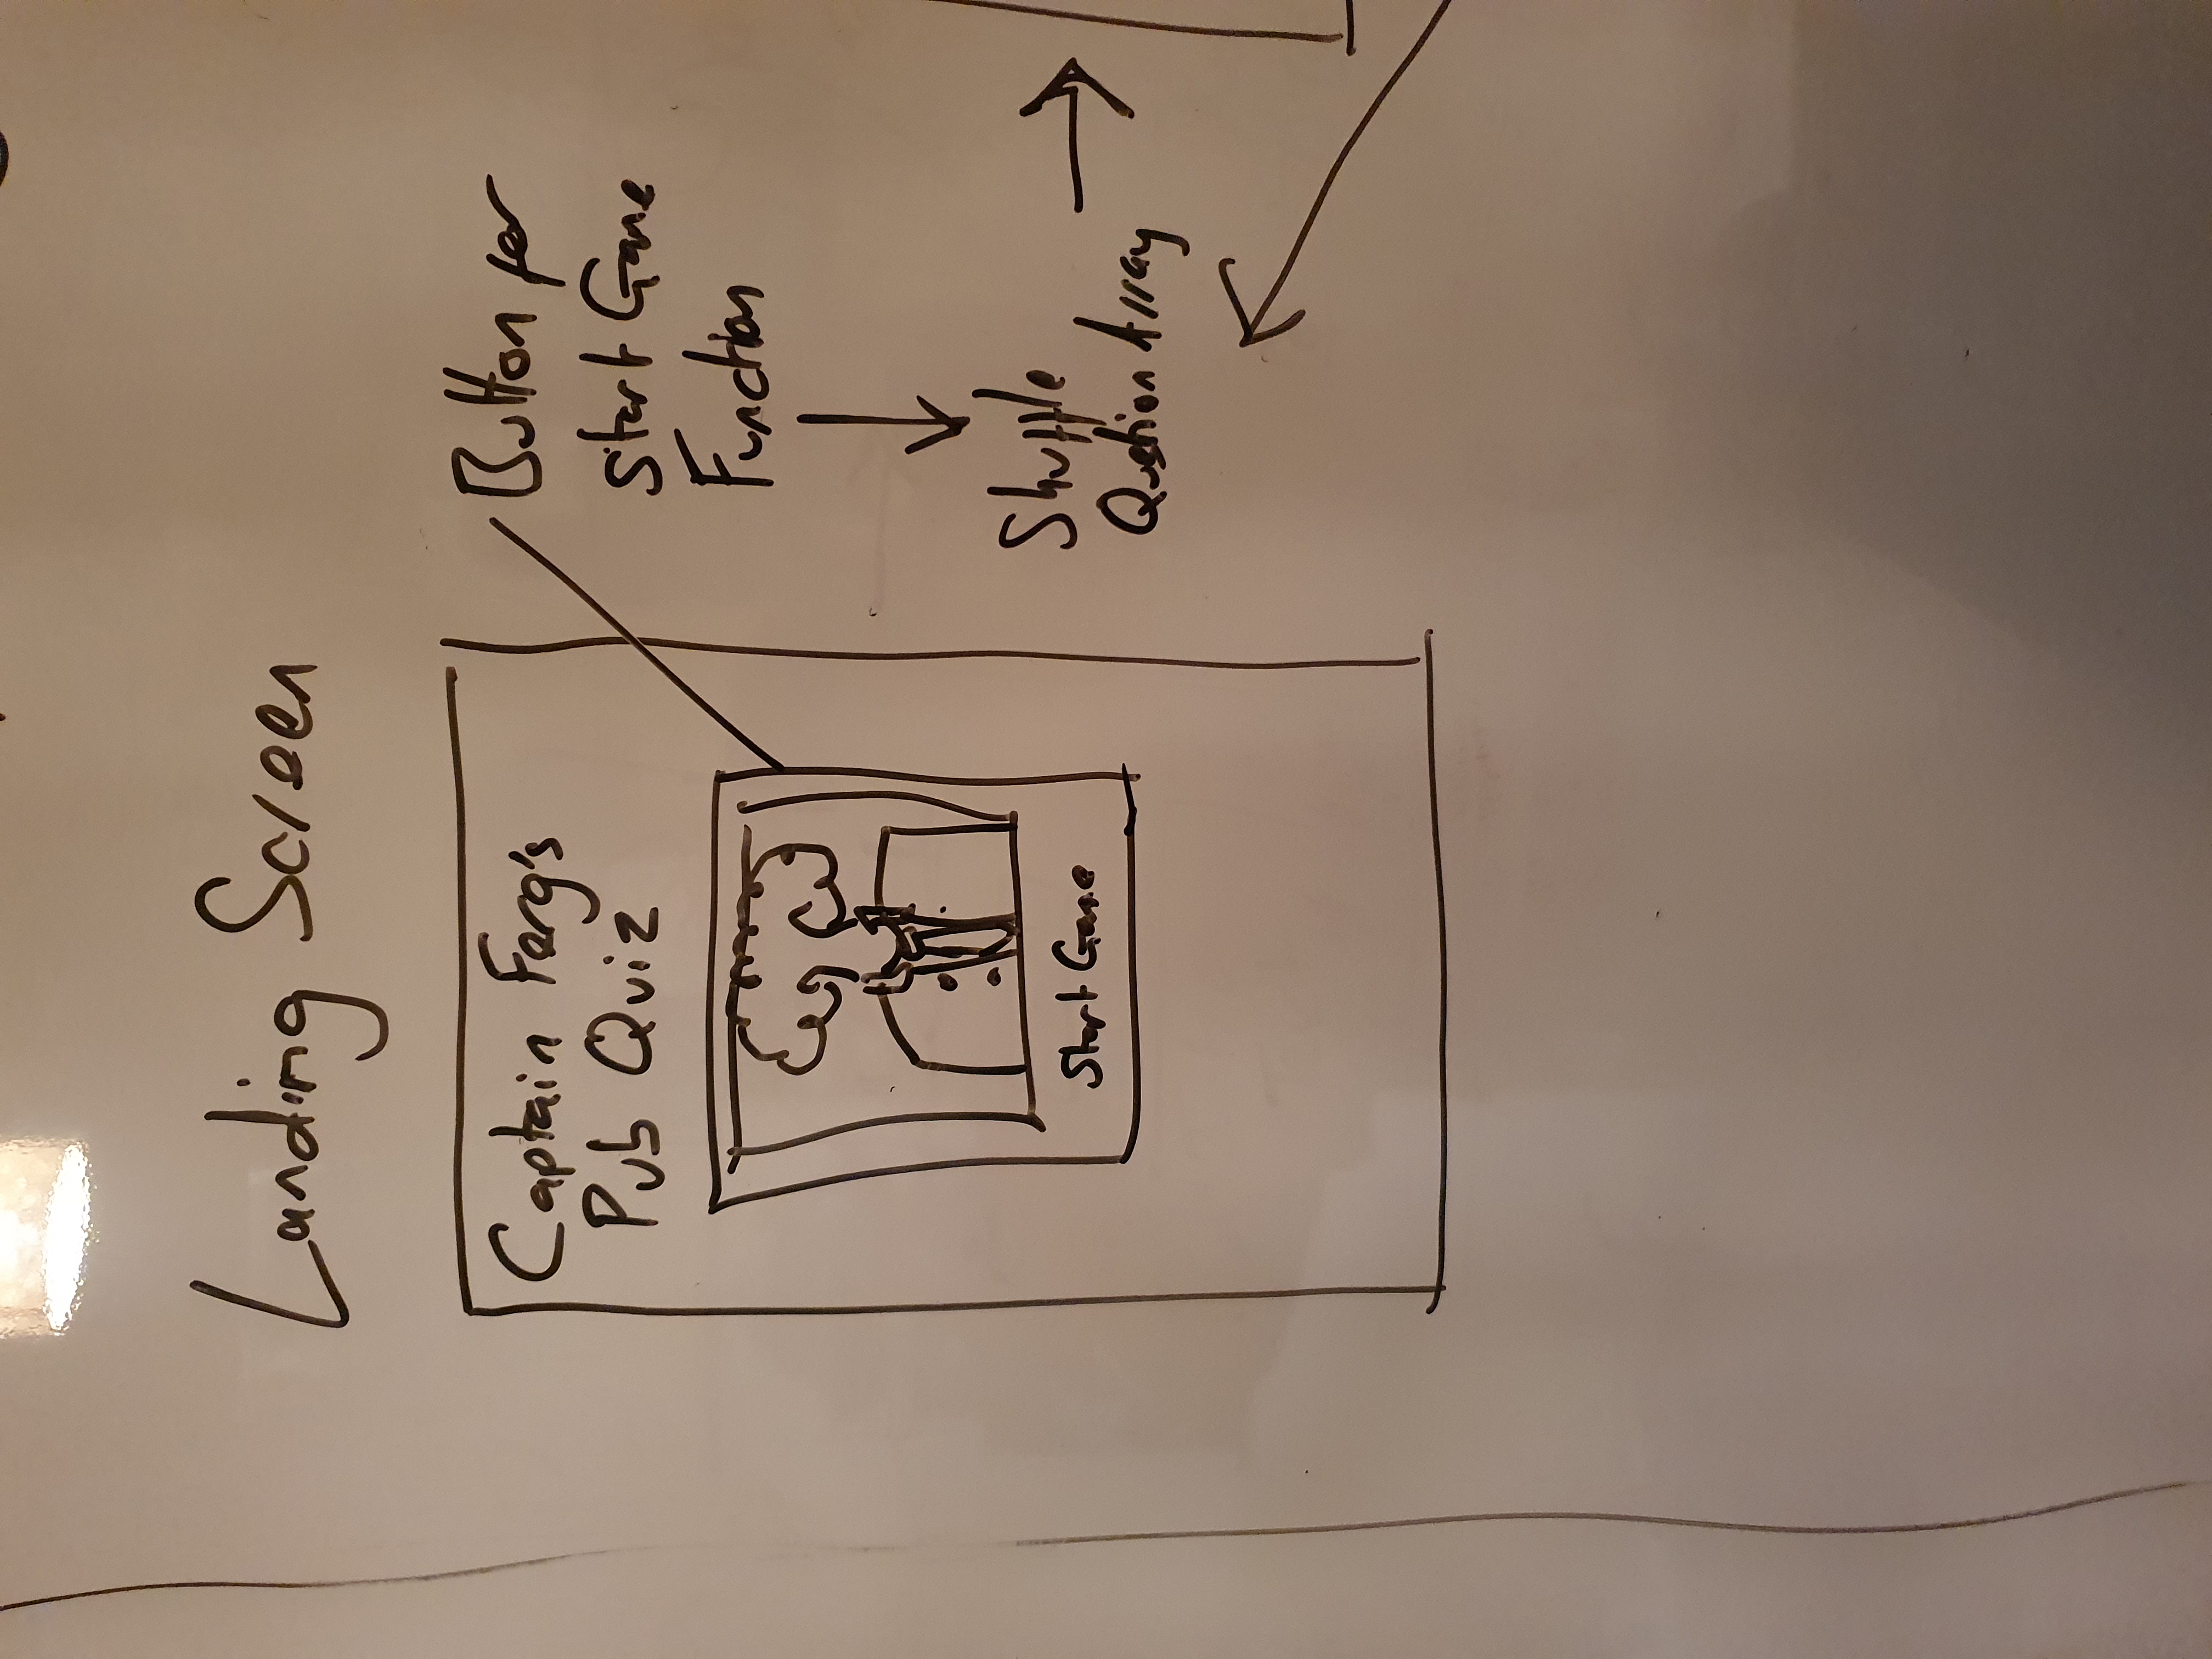 Landing Screen
Captain Ferg's
Pub Quiz
Start Game
Button for
start Game
Function
Shuffle
Question Array